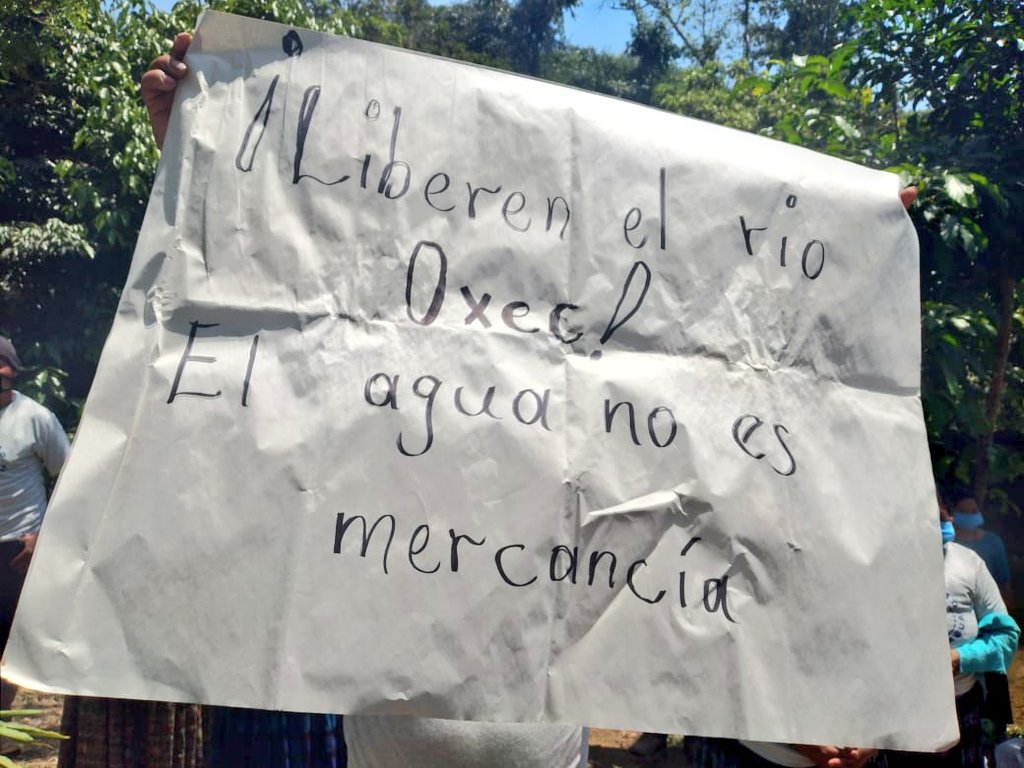 ¡Liberen el rio
Oxec!
El agua no es
mercancía